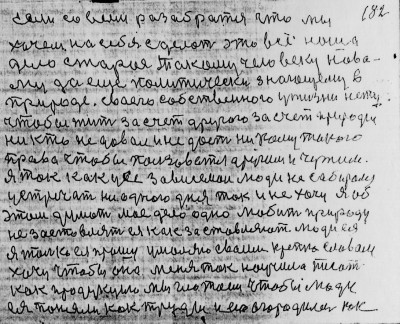 182
если со всеми разабратся что мы
хочем на себя сделют это всё наша
дело старая такому человеку нова
му да еще политически знающему в
природе. своего собственного у жизни нету
чтобы жить за счет другого за счет природы
никто не довал и не даст никому такого
права чтобы ползоватся другим и чужим.
я так как уже зависемой люди не
устричат ни одного дня так и не хочу я об
этом думат мое дело одно любит природу
не заставлят ея как заставляют люди ея
я толко ея прошу умоляю своими словам
хочу чтобы она меня так научила писат
как продукцию мы чтобы люди
ея поняли как труды и не огородилас как